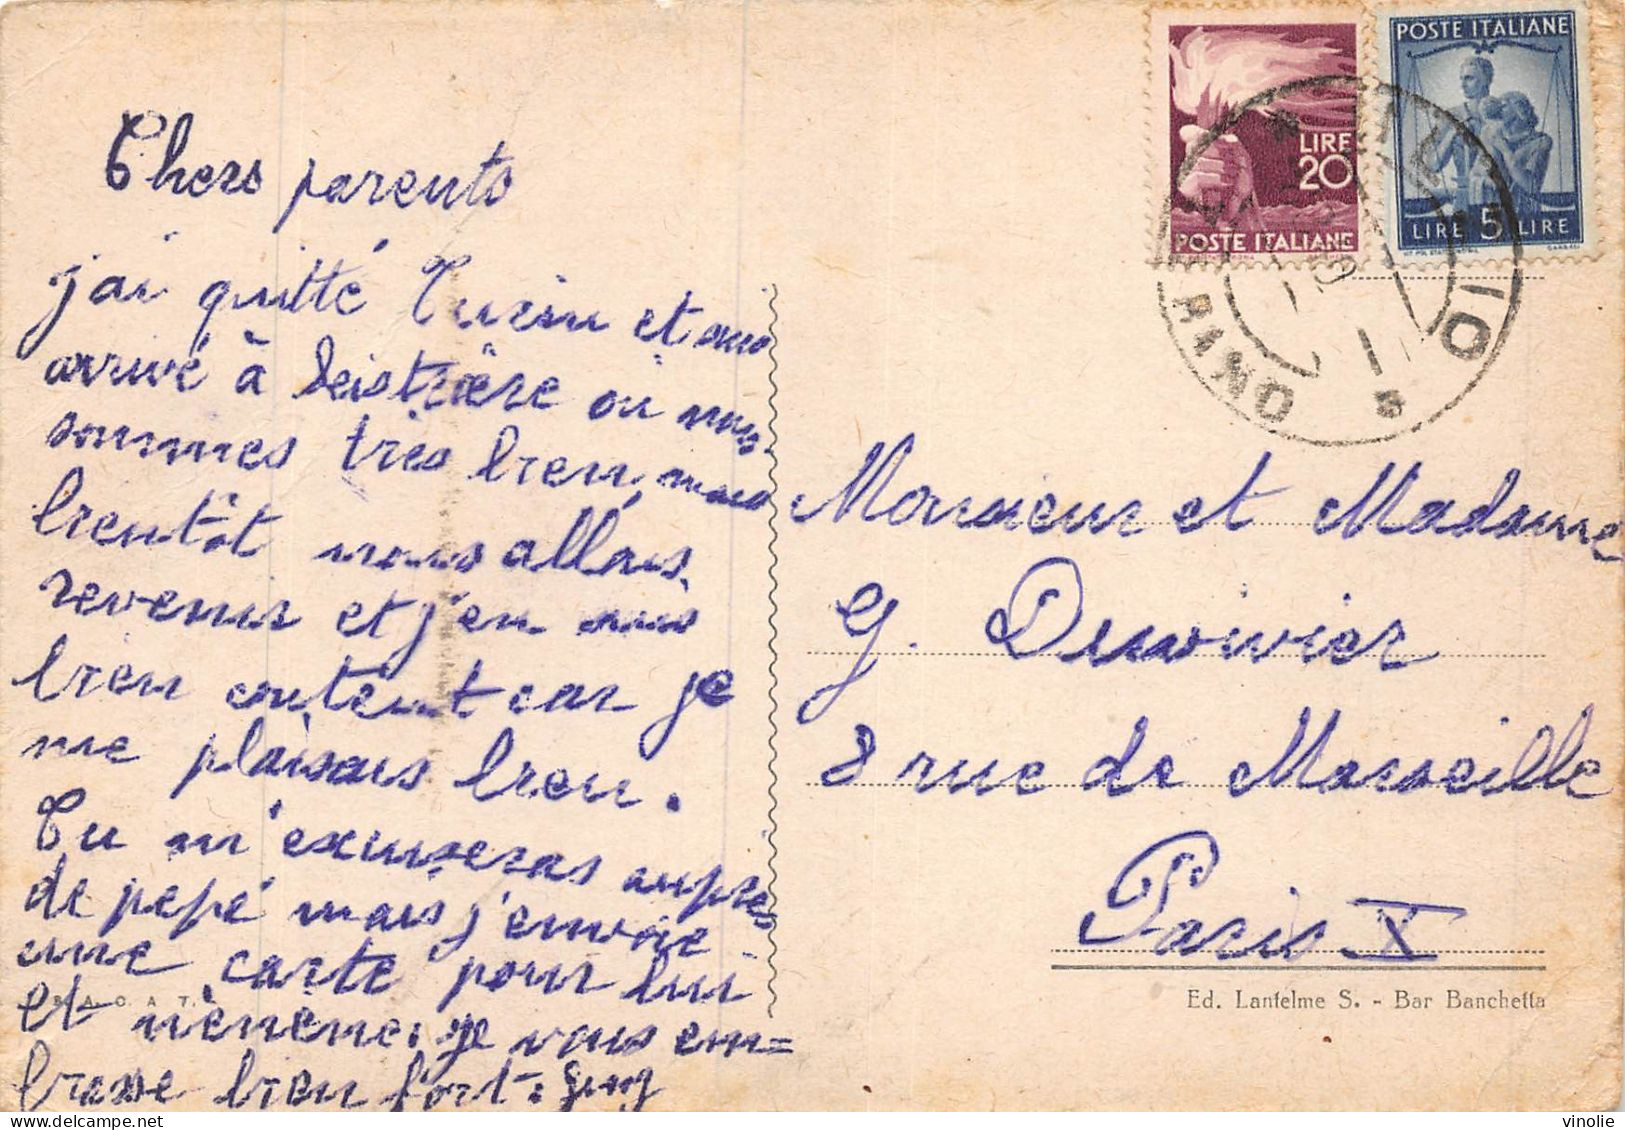 Chers parents
j'ai quitté Turin et suis
arrivé à Seistrière ou nous
sommes très bien mais
bientôt nous allons
revenir et j'en suis
bien content car je
me plaisais bien.
Tu m'excuseras auprès
de pépé mais j'envoie
une carte pour lui
et mémène. je vous em=
brasse bien fort.
S. A. C. A. T.
LIRE
20
POSTE ITALIANE
POSTE ITALIANE
LIRE 5 LIRE
Monsieur et Madame
G. Duvivier
8 rue de Marseille
Paris X
Ed. Lantelme S. - Bar Banchetta
vinolie